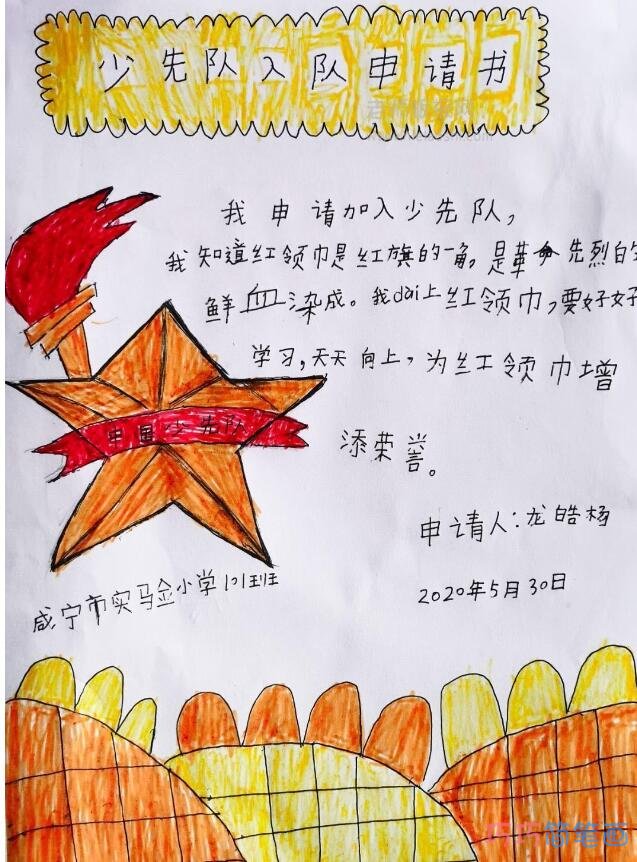 少先队入队申请书
我申请加入少先队，
我知道红领巾是红旗的一角，是革命先烈白的
鲜血染成。我dai上红领巾，要好好
学习，天天向上，为红领巾增
添荣誉。
中国少先队
申请人：龙皓杨
咸宁市实马佥小学101班
2020年5月30日
简笔画